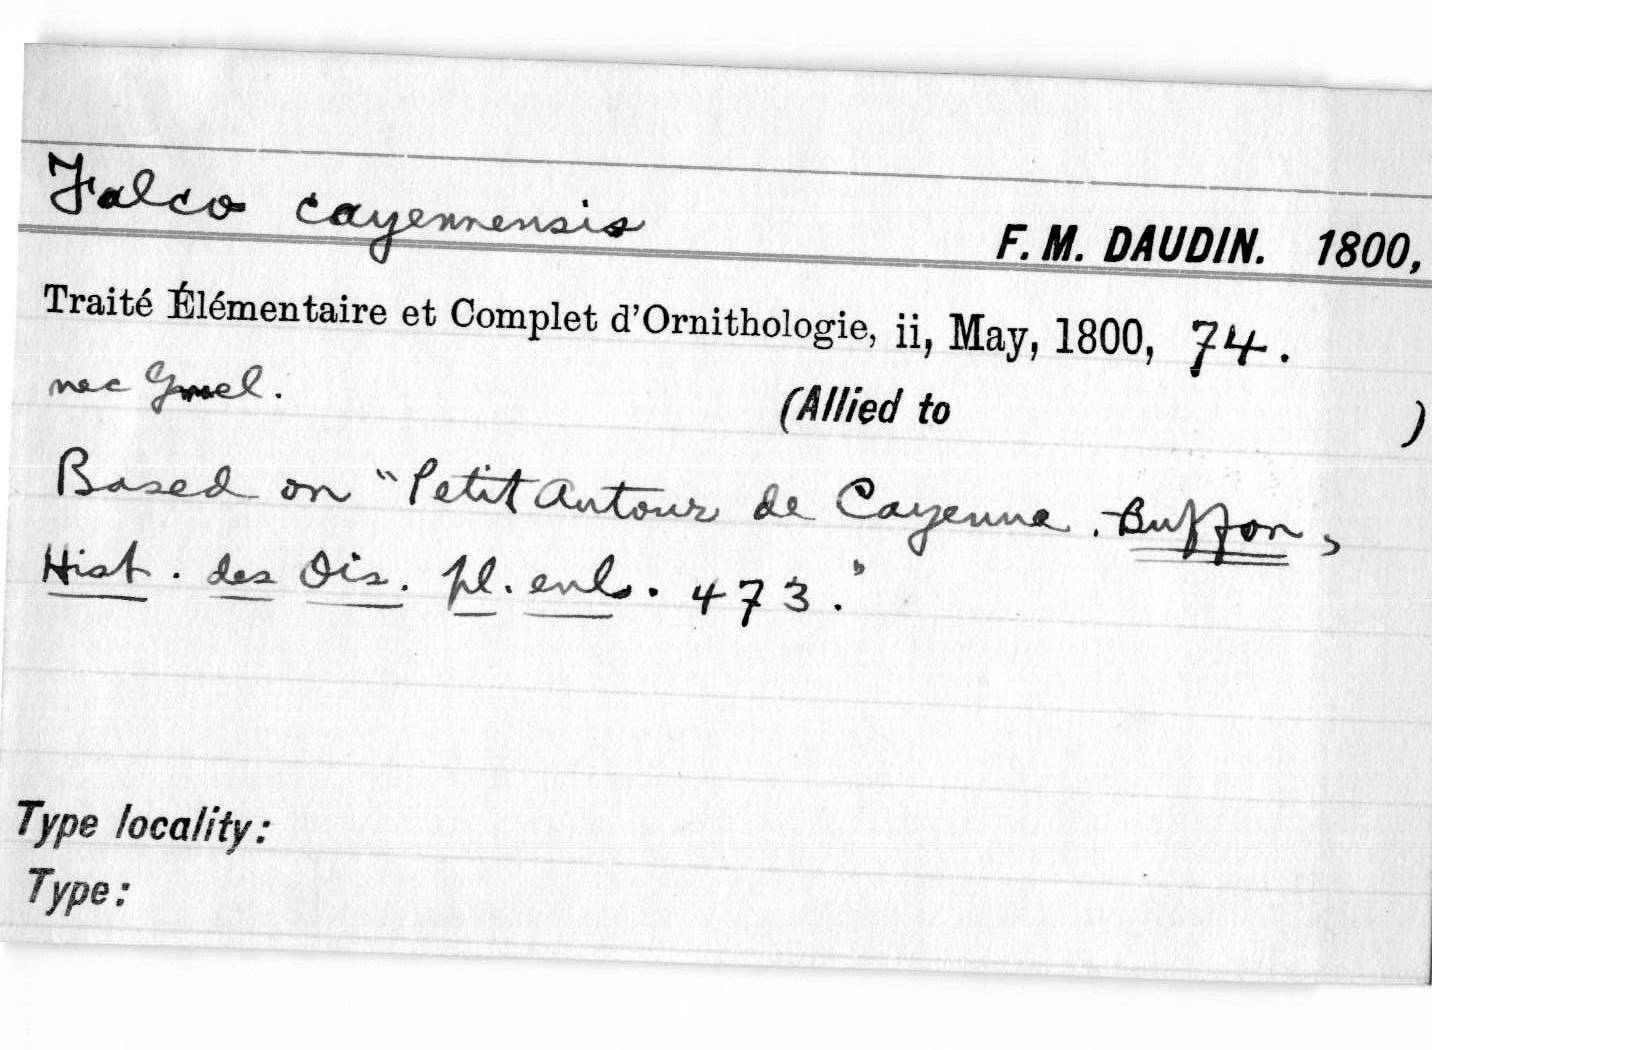 Falco cayennensis
F. M. DAUDIN. 1800,
Traité Élémentaire et Complet d'Ornithologie, ii, May, 1800, 74.
nec Gmel. (Allied to )
Based on "Petit Autour de Cayenne. Buffon,
Hist. des Ois. pl. enl. 473."
Type locality:
Type: